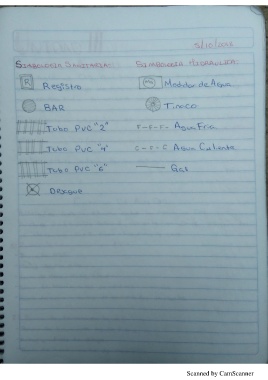 5/10/2018
Simbología Sanitaria: Simbología Hidráulica:
R Registro M Medidor de Agua
BAR Tinaco
Tubo PVC "2" F-F-F- Agua Fria
Tubo PVC "4" C-C-C Agua Caliente
Tubo PVC "6" Gas
Scanned by CamScanner